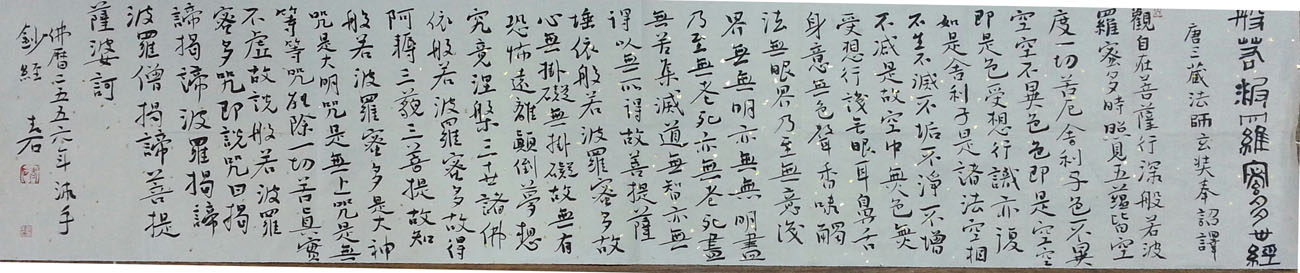 般若波羅蜜多心經
唐三藏法師玄奘奉詔譯
觀自在菩薩行深般若波
羅蜜多時照見五蘊皆空
度一切苦厄舍利子色不異
空空不異色色即是空空
即是色受想行識亦復
如是舍利子是諸法空相
不生不滅不垢不淨不增
不減是故空中無色無
受想行識無眼耳鼻舌
身意無色聲香味觸
法無眼界乃至無意識
界無無明亦無無明盡
乃至無老死亦無老死盡
無苦集滅道無智亦無
得以無所得故菩提薩
埵依般若波羅蜜多故
心無掛礙無掛礙故無有
恐怖遠離顛倒夢想
究竟涅槃三世諸佛
依般若波羅蜜多故得
阿耨三藐三菩提故知
般若波羅蜜多是大神
咒是大明咒是無上咒是無
等等咒能除一切苦真實
不虛故說般若波羅
蜜多咒即說咒曰揭
諦揭諦波羅揭諦
波羅僧揭諦菩提
薩婆訶
佛曆二五五六年
鈔經